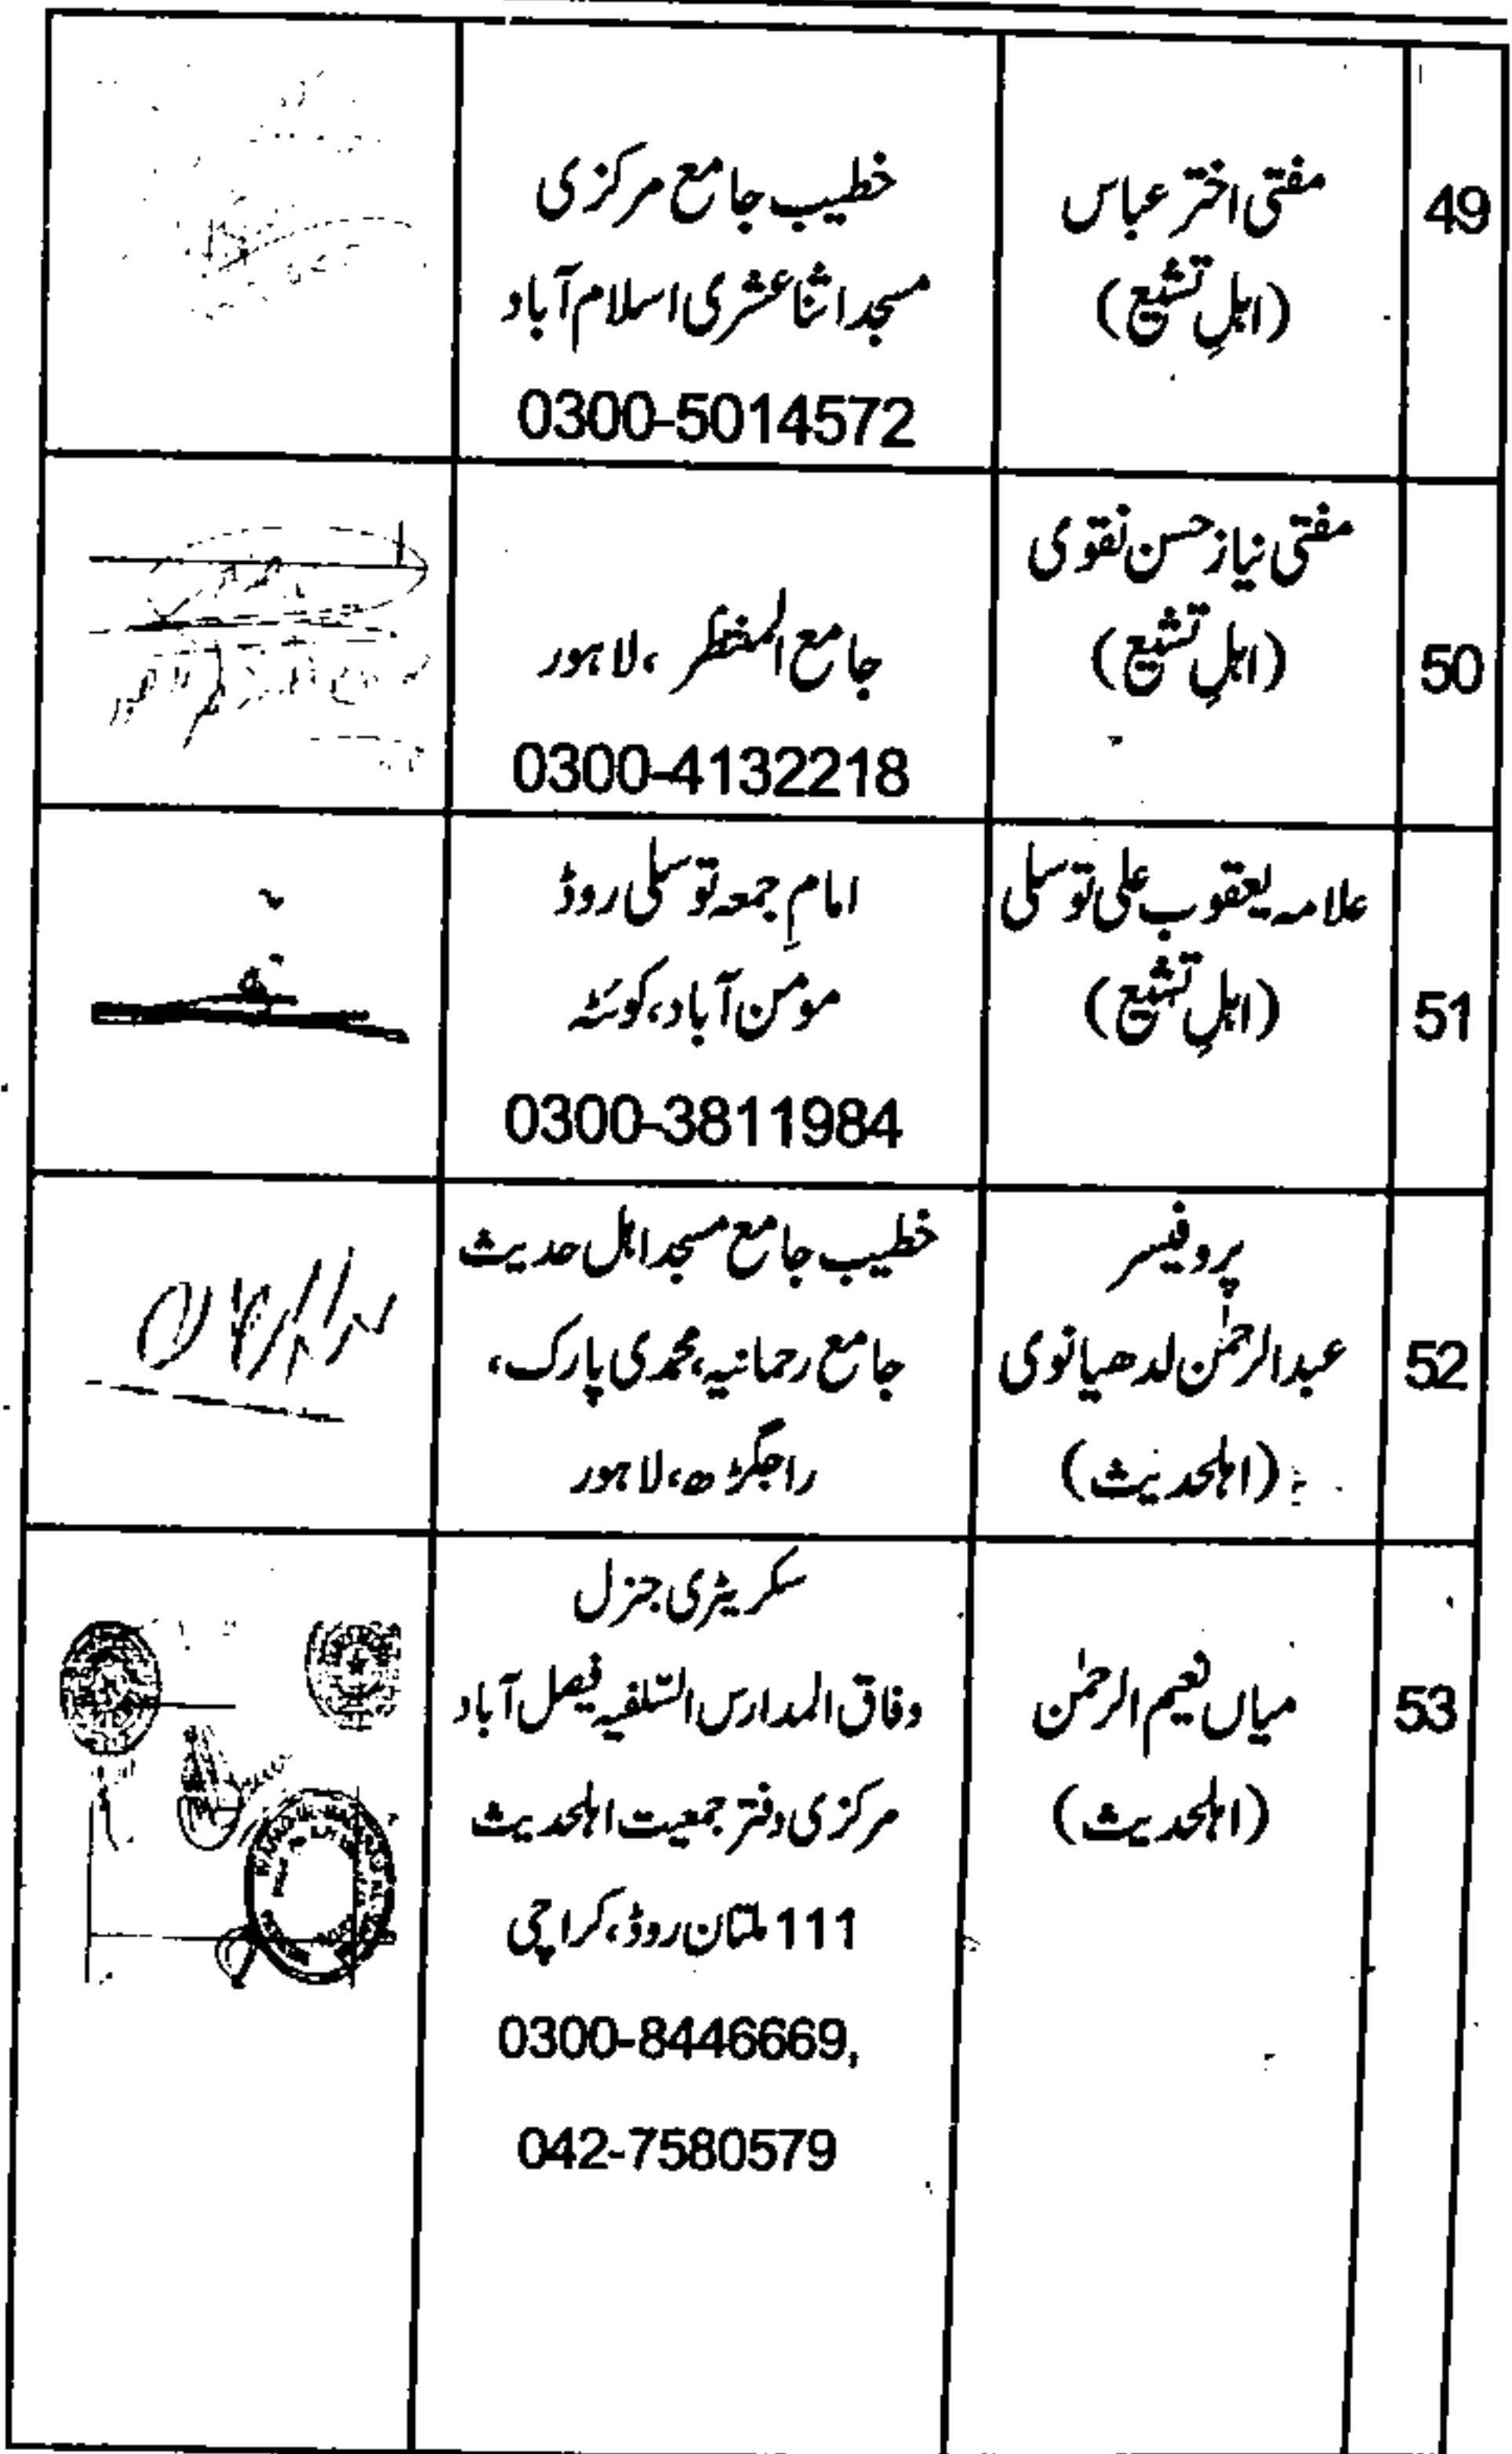 49
مفتی اختر عباس
(اہلِ تشیع)
خطیب جامع مرکزی
مسجد اثنا عشری اسلام آباد
0300-5014572
50
مفتی نیاز حسن نقوی
(اہلِ تشیع)
جامع المنتظر، لاہور
0300-4132218
51
علامہ یعقوب علی توسلی
(اہلِ تشیع)
امامِ جمعہ توسلی روڈ
مومن آباد، کوئٹہ
0300-3811984
52
پروفیسر
عبدالرحمٰن لدھیانوی
(اہلحدیث)
خطیب جامع مسجد اہل حدیث
جامع رحمانیہ، محمدی پارک،
راجگڑھ، لاہور
53
میاں نعیم الرحمٰن
(اہلحدیث)
سکریٹری جنرل
وفاق المدارس السّلفیہ فیصل آباد
مرکزی دفتر جمعیت اہلحدیث
111 ملتان روڈ، کراچی
0300-8446669,
042-7580579